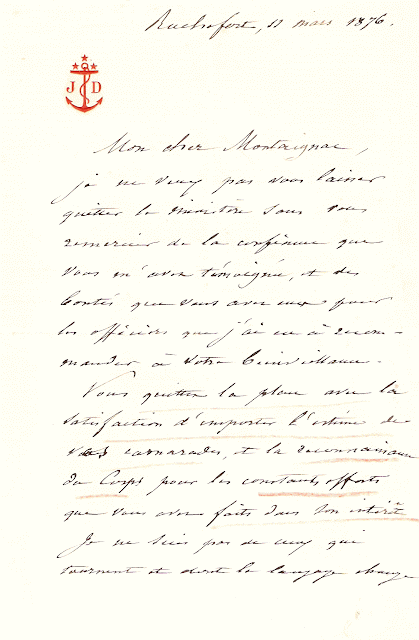 Rochefort, 11 mars 1876.
J D
Mon cher Montaignac,
je ne veux pas vous laisser
quitter le ministère sans vous
remercier de la confiance que
vous m'avez témoignée, et des
bontés que vous avez eues pour
les officiers que j'ai eu à recom-
mander à votre bienveillance.
Vous quittez la place avec la
satisfaction d'emporter l'estime de
vos camarades, et la reconnaissance
du Corps pour les constants efforts
que vous avez faits dans son intérêt.
Je ne suis pas de ceux qui
tournent et dont le langage change